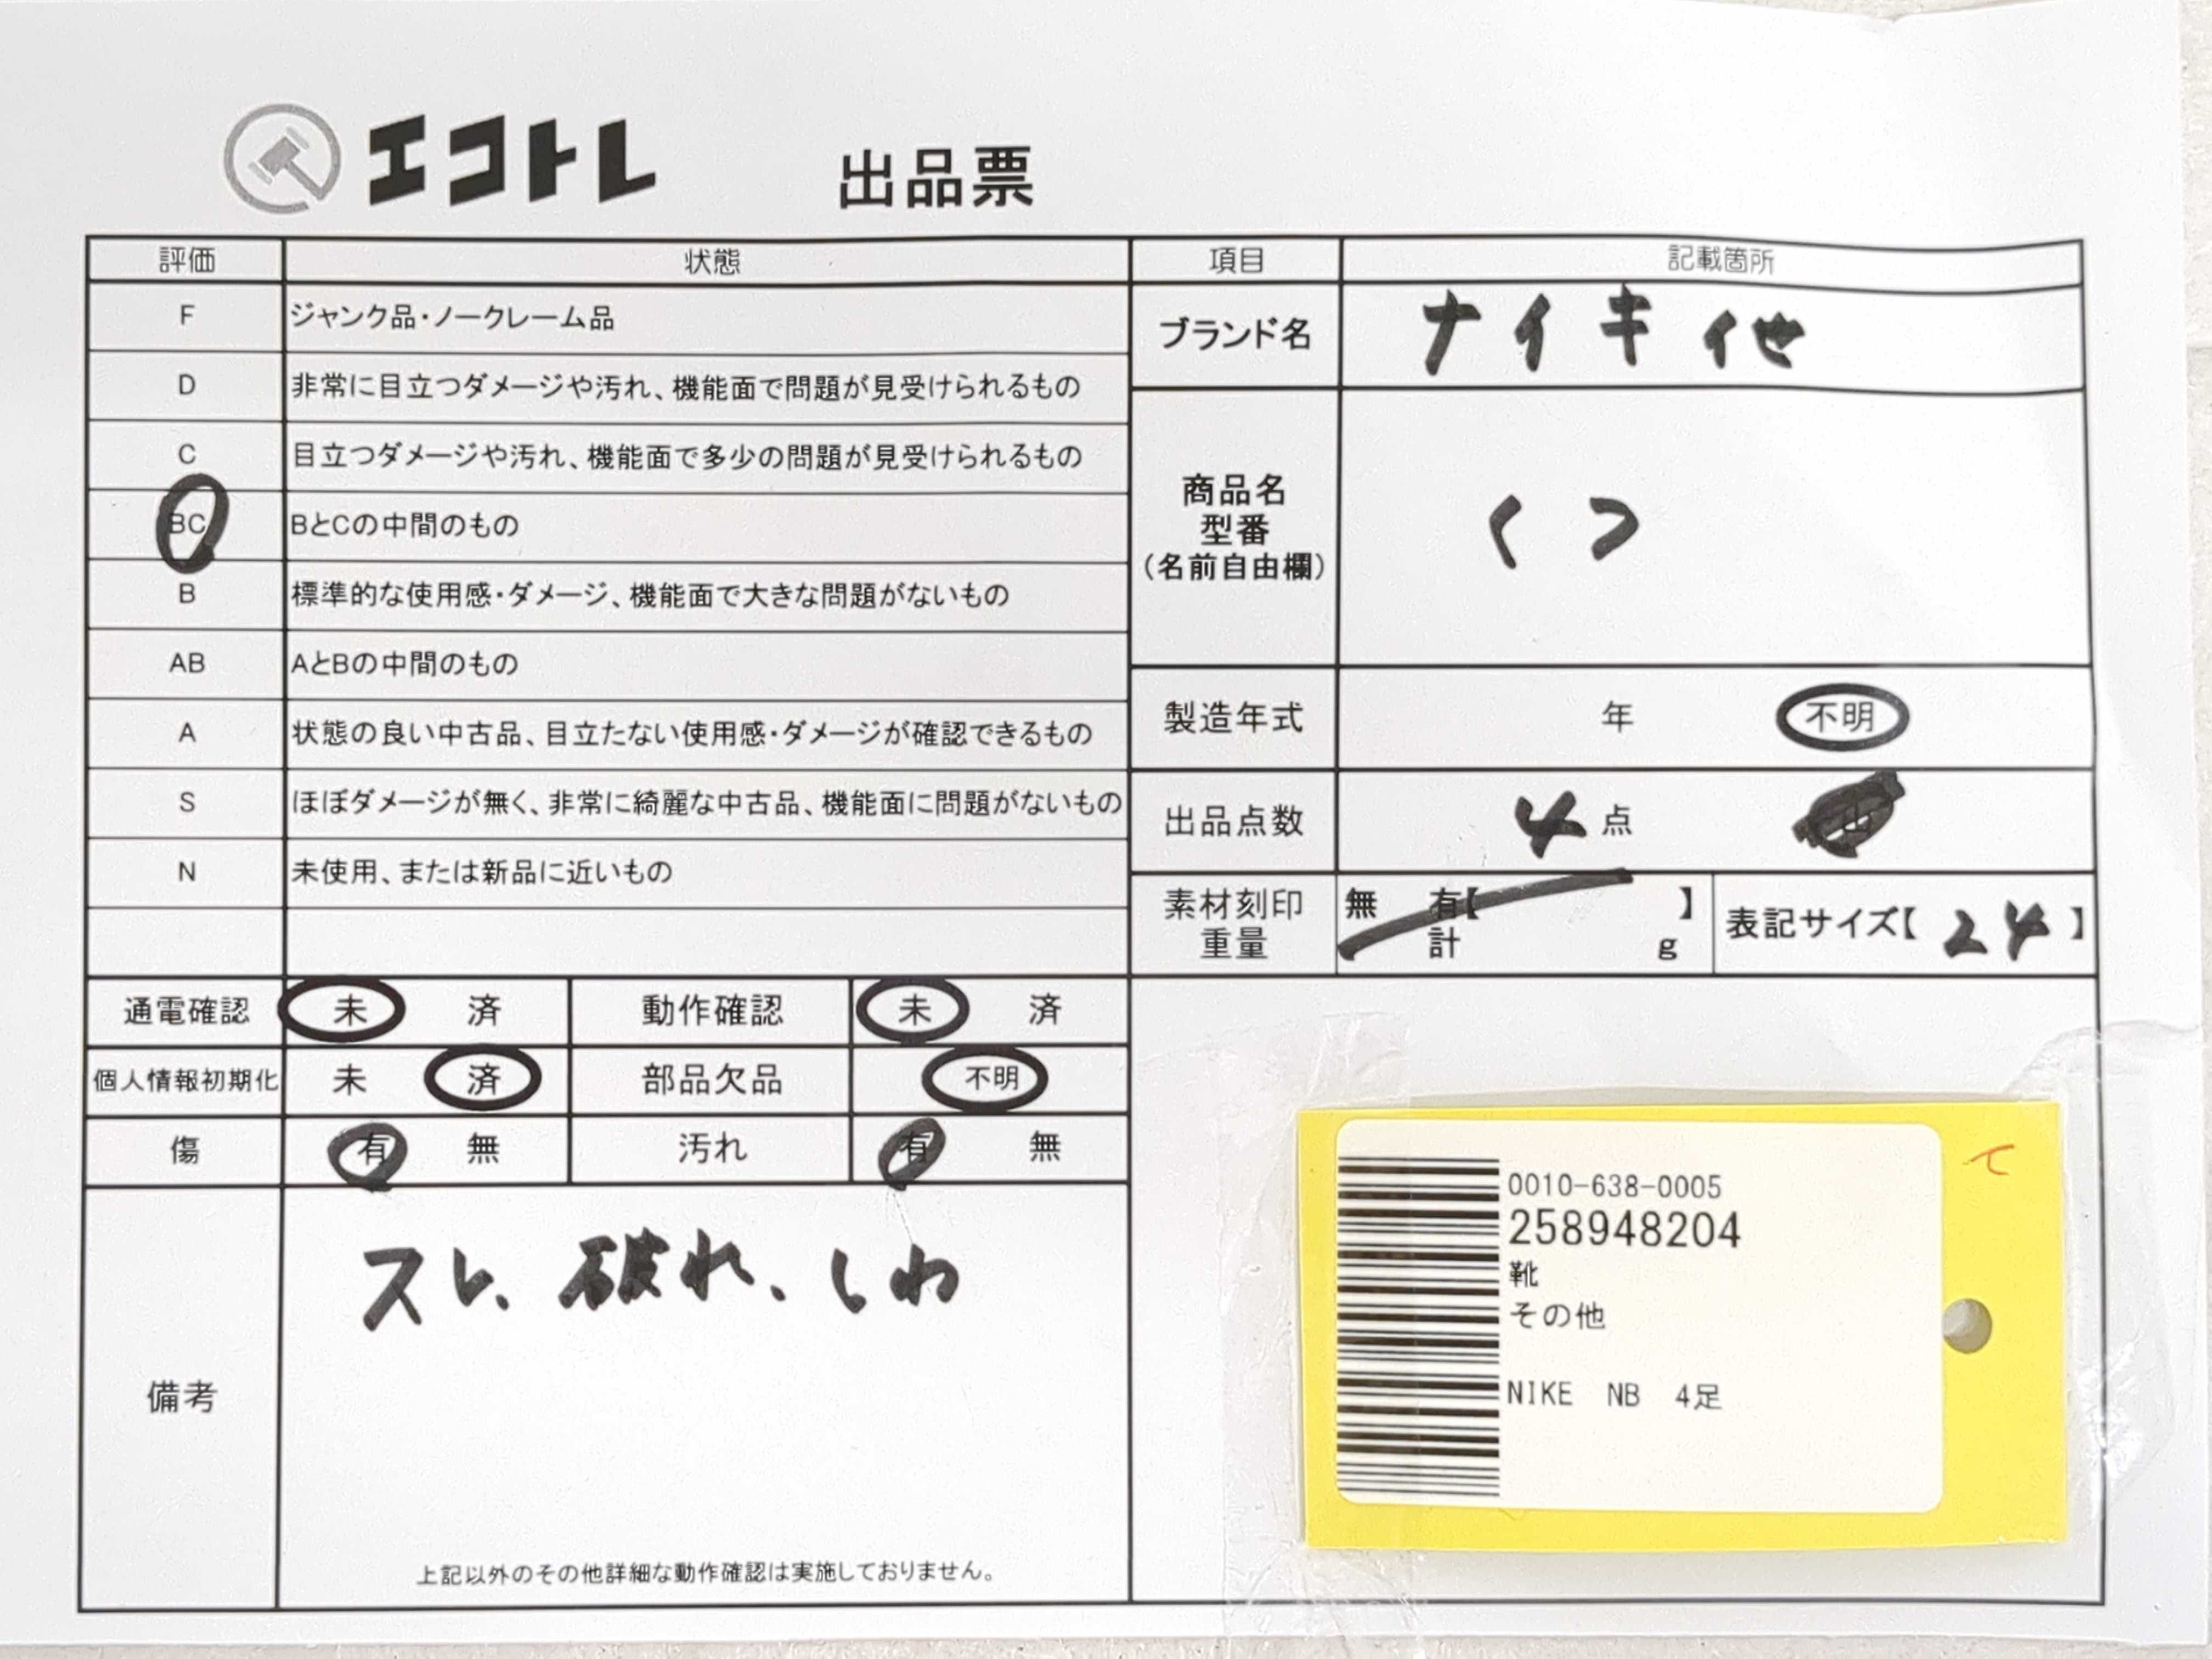 エコトレ 出品票
評価 状態
F ジャンク品・ノークレーム品
D 非常に目立つダメージや汚れ、機能面で問題が見受けられるもの
C 目立つダメージや汚れ、機能面で多少の問題が見受けられるもの
BC BとCの中間のもの
B 標準的な使用感・ダメージ、機能面で大きな問題がないもの
AB AとBの中間のもの
A 状態の良い中古品、目立たない使用感・ダメージが確認できるもの
S ほぼダメージが無く、非常に綺麗な中古品、機能面に問題がないもの
N 未使用、または新品に近いもの
項目 記載箇所
ブランド名 ナイキ他
商品名
型番
(名前自由欄)
くつ
製造年式 年 不明
出品点数 4点
素材刻印 無 有【 】
重量 計 g
表記サイズ【24】
通電確認 未 済 動作確認 未 済
個人情報初期化 未 済 部品欠品 不明
傷 有 無 汚れ 有 無
備考
スレ、破れ、しわ
上記以外のその他詳細な動作確認は実施しておりません。
0010-638-0005
258948204
靴
その他
NIKE NB 4足